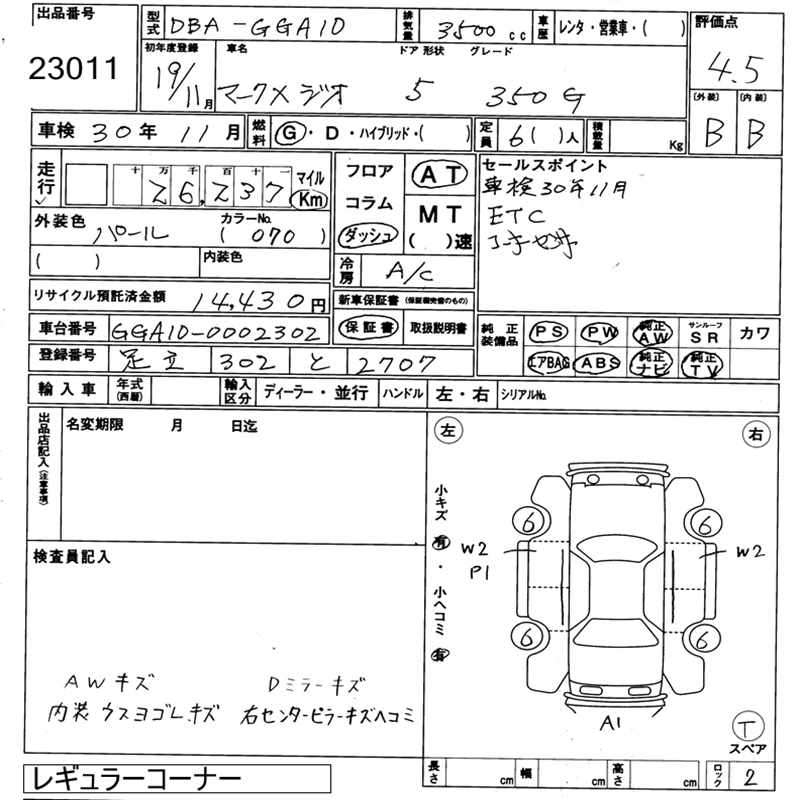 出品番号
23011
型式 DBA-GGA10 排気量 3500 cc 車歴 レンタ・営業車・( )
評価点
4.5
[外装] [内装]
B B
初年度登録 車名 ドア 形状 グレード
19/11月 マークX ジオ 5 350G
車検 30年 11月 燃料 G・D・ハイブリッド・( ) 定員 6( )人 積載量 Kg
走行 十 万 千 百 十 一 マイル
26,237 Km
フロア
コラム
ダッシュ
AT
MT
( )速
セールスポイント
車検30年11月
ETC
外装色 カラーNo.
パール ( 070 )
( ) 内装色
冷房 A/C
リサイクル預託済金額 14,430円
新車保証書 (保証継続完備のもの)
保証書 取扱説明書
車台番号 GGA10-0002302
登録番号 足立 302 と 2707
純正装備品 PS PW 純正AW サンルーフSR カワ
エアBAG ABS 純正ナビ 純正TV
輸入車 年式(西暦) 輸入区分 ディーラー・並行 ハンドル 左・右 シリアルNo.
出品店記入(注意事項)
名変期限 月 日迄
左 右
小キズ 有・小ヘコミ 有
6 6
W2 W2
P1
6 6
A1
検査員記入
AWキズ Dミラーキズ
内装 ウスヨゴレ.キズ 右センターピラーキズヘコミ
T
スペア
レギュラーコーナー
長さ cm 幅 cm 高さ cm ロック 2